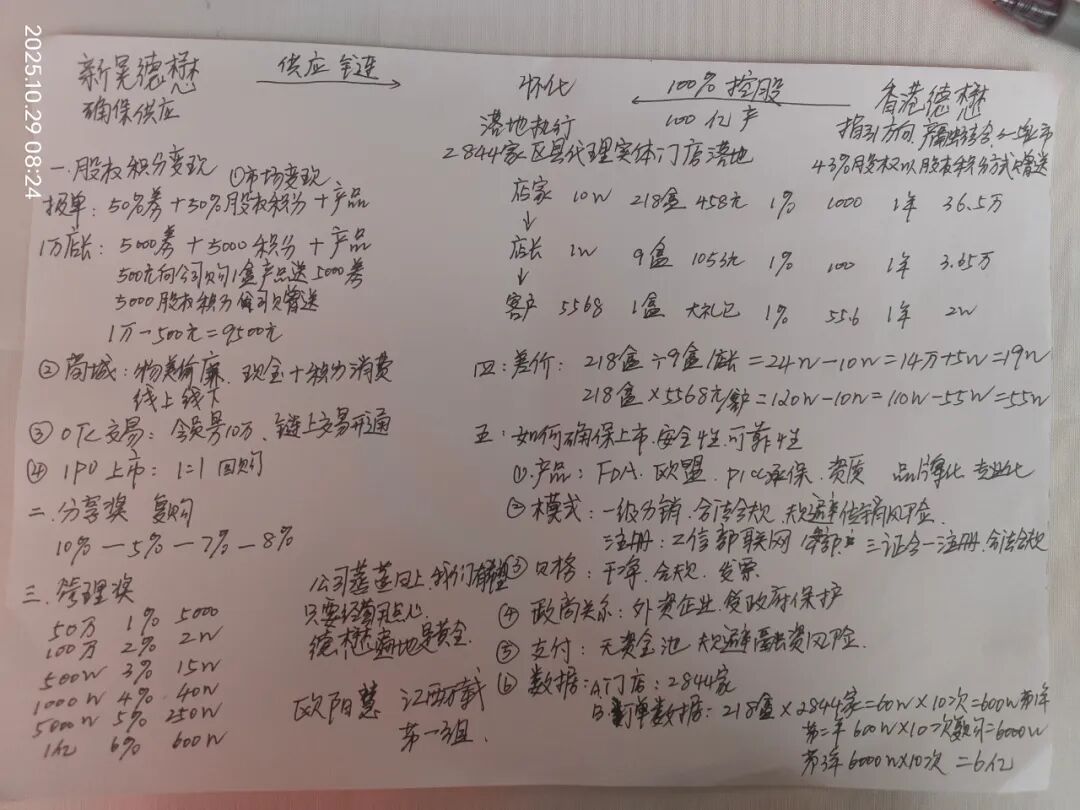 2025.10.29 08:24
新吴德懋 供应链 怀化 100%控股 香港德懋
确保供应 落地执行 100亿产 指引方向
2844家区县代理实体门店落地 43%股权以股权积分方式赠送
一.股权积分变现 ①市场变现
报单: 50%券+50%股权积分+产品
1万店长: 5000券+5000积分+产品
500元向公司购1盒产品送5000券
5000股权积分 公司赠送
1万-500元=9500元
② 商城: 物美价廉. 现金+积分消费
线上线下
③ OTC交易: 会员号10万、链上交易开通
④ IPO上市: 1=1 回购
二.分享奖 复购
10%—5%—7%—8%
三.管理奖
50万 1% 5000
100万 2% 2W
500W 3% 15W
1000W 4% 40W
5000W 5% 250W
1亿 6% 600W
公司蒸蒸日上,我们
只要经营用点心
德懋遍地是黄金.
欧阳慧 江西戴
第一组.
店家 10W 218盒 458元 1% 1000 1年 36.5万
↓
店长 1W 9盒 1053元 1% 100 1年 3.65万
↓
客户 5568 1盒 大礼包 1% 55.6 1年 2W
四:差价: 218盒÷9盒/店长=24W-10W=14万+5W=19W
218盒×5568元/客户=120W-10W=110W-55W=55W
五:如何确保上市.安全性.可靠性
①.产品: FDA. 欧盟. PICC承保. 资质 品牌化 专业化
②模式: 一级分销. 合法合规. 规避传销风险.
注册: 工信部联网 三证合一注册.合法合规
③ 干净. 合规. 发票
④ 政商关系: 外资企业.受政府保护
⑤ 支付: 无资金池 规避融资风险.
⑥ 数据: A门店: 2844家
B订单数据: 218盒×2844家=60W×10次=600W第1年
第二年600W×10次复购=6000W
第3年6000W×10次=6亿